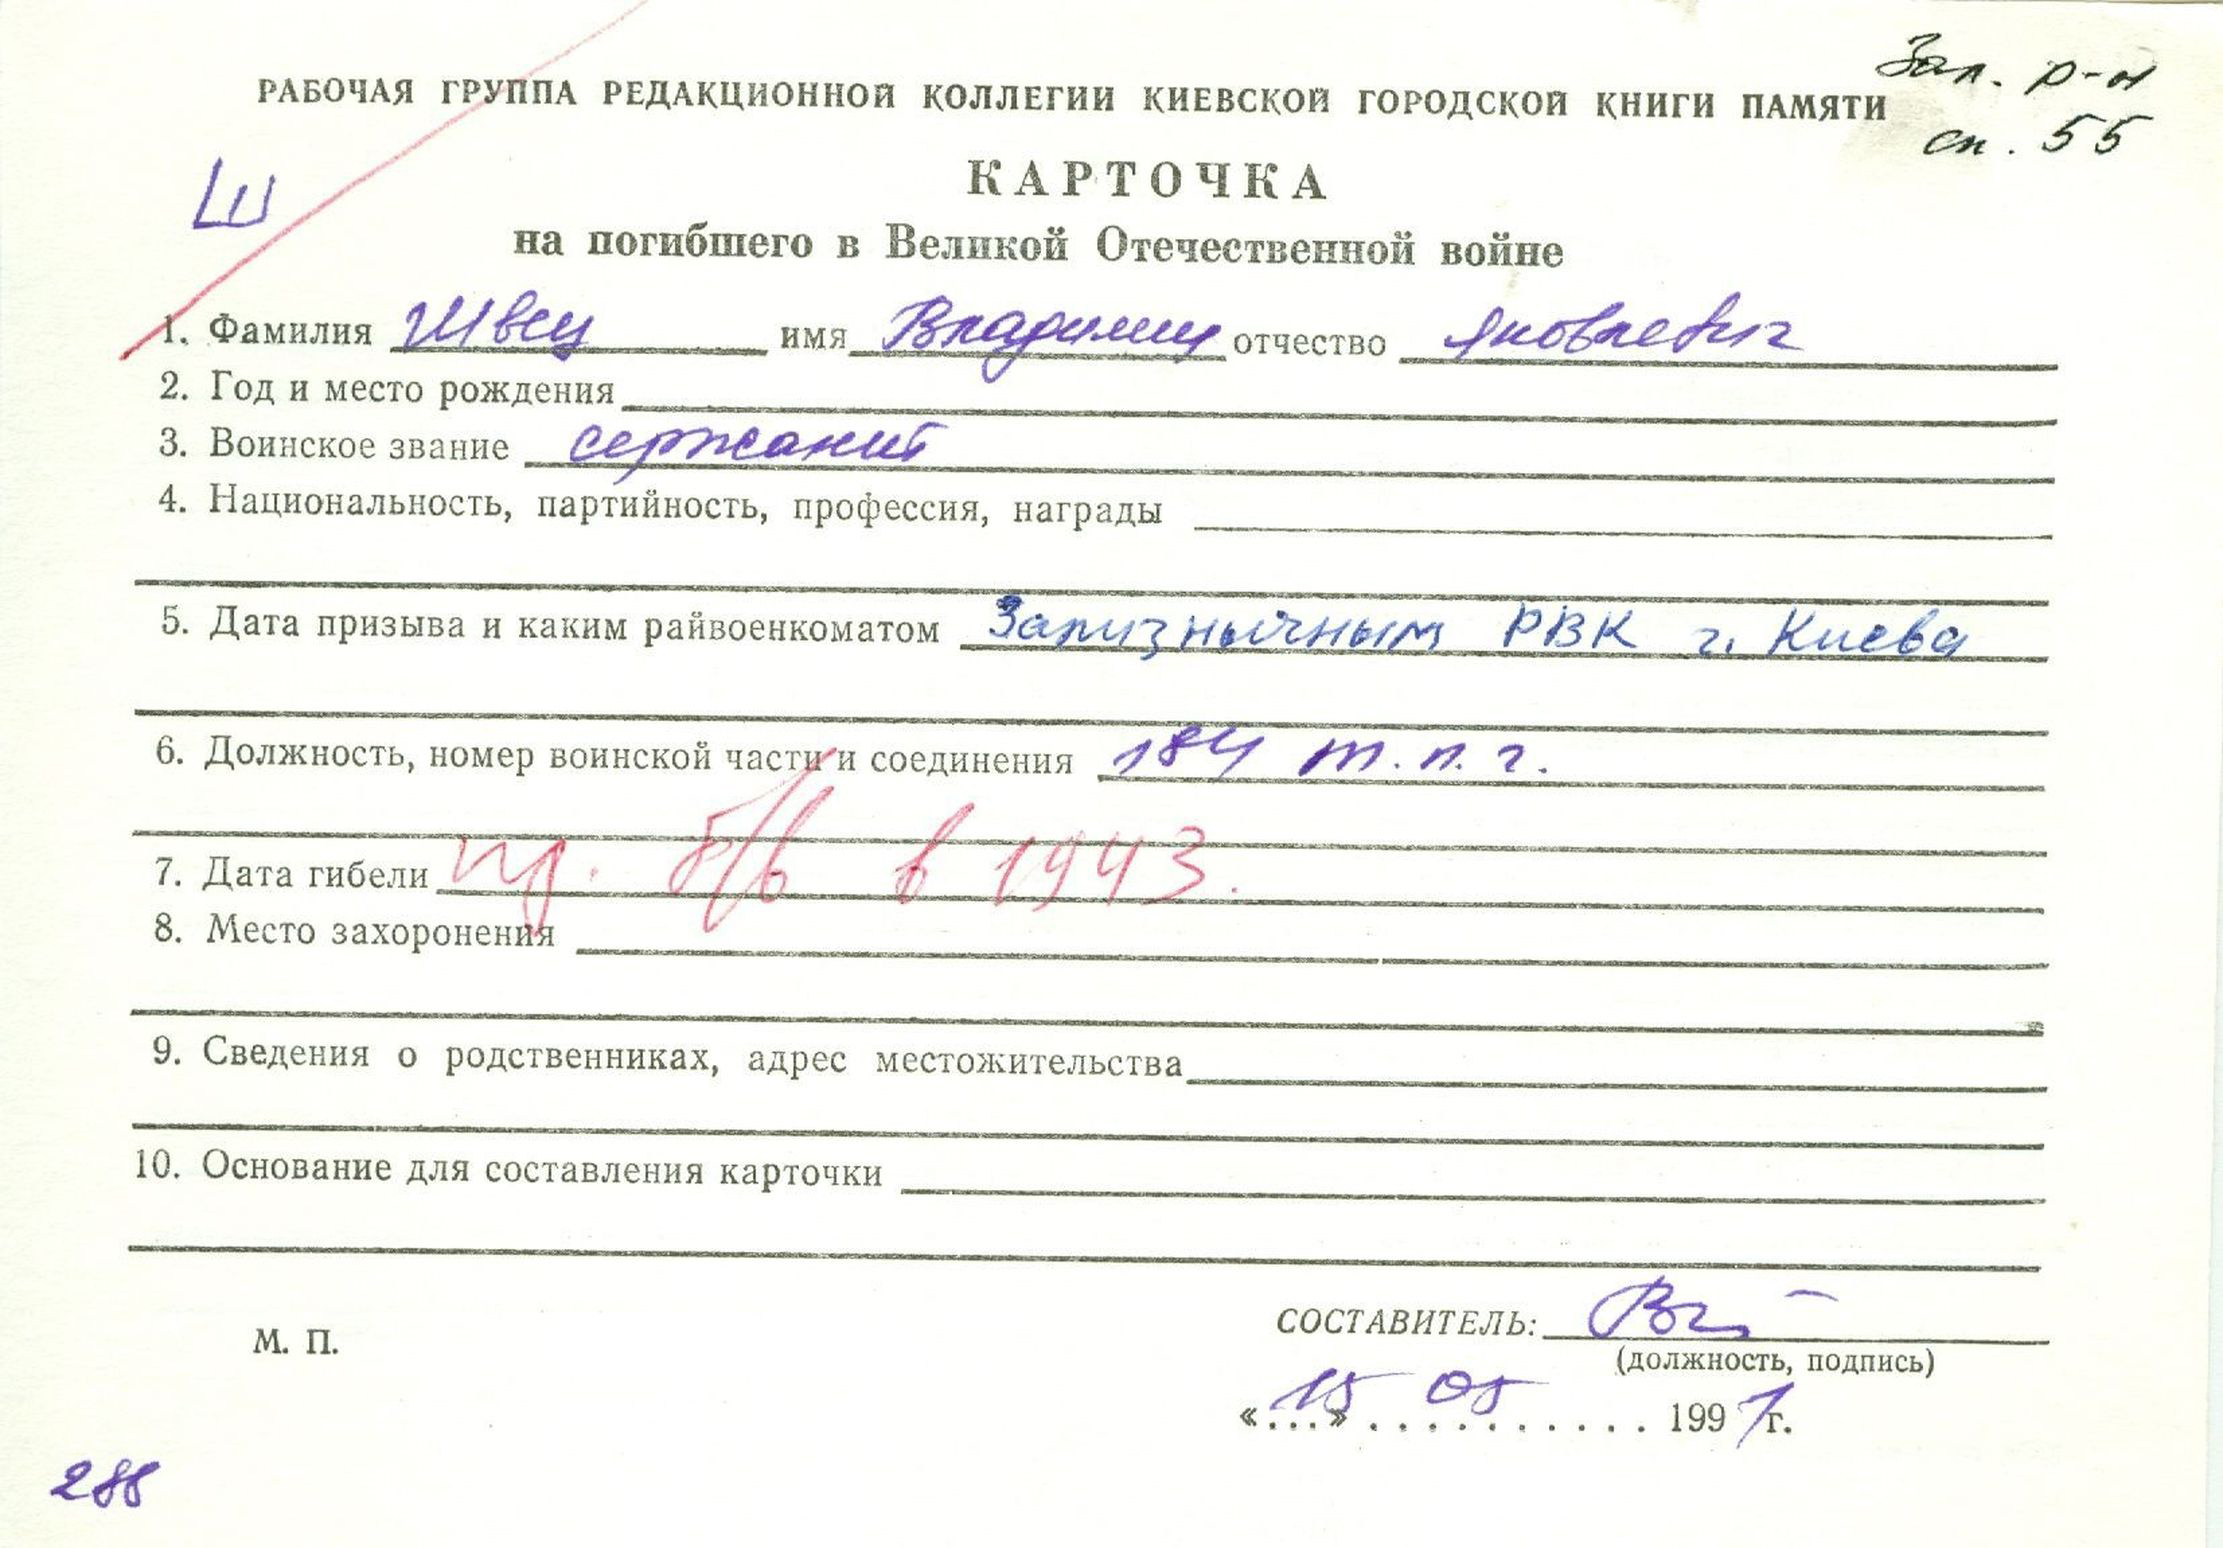 Зал. р-н
сп. 55
РАБОЧАЯ ГРУППА РЕДАКЦИОННОЙ КОЛЛЕГИИ КИЕВСКОЙ ГОРОДСКОЙ КНИГИ ПАМЯТИ
Ш
КАРТОЧКА
на погибшего в Великой Отечественной войне
1. Фамилия Швец имя Владимир отчество Яковлевич
2. Год и место рождения
3. Воинское звание сержант
4. Национальность, партийность, профессия, награды
5. Дата призыва и каким райвоенкоматом Зализнычным РВК г. Киева
6. Должность, номер воинской части и соединения 184 т.п.г.
7. Дата гибели пр. б/в в 1943.
8. Место захоронения
9. Сведения о родственниках, адрес местожительства
10. Основание для составления карточки
СОСТАВИТЕЛЬ:
М. П.
(должность, подпись)
«15» 05 1991 г.
288